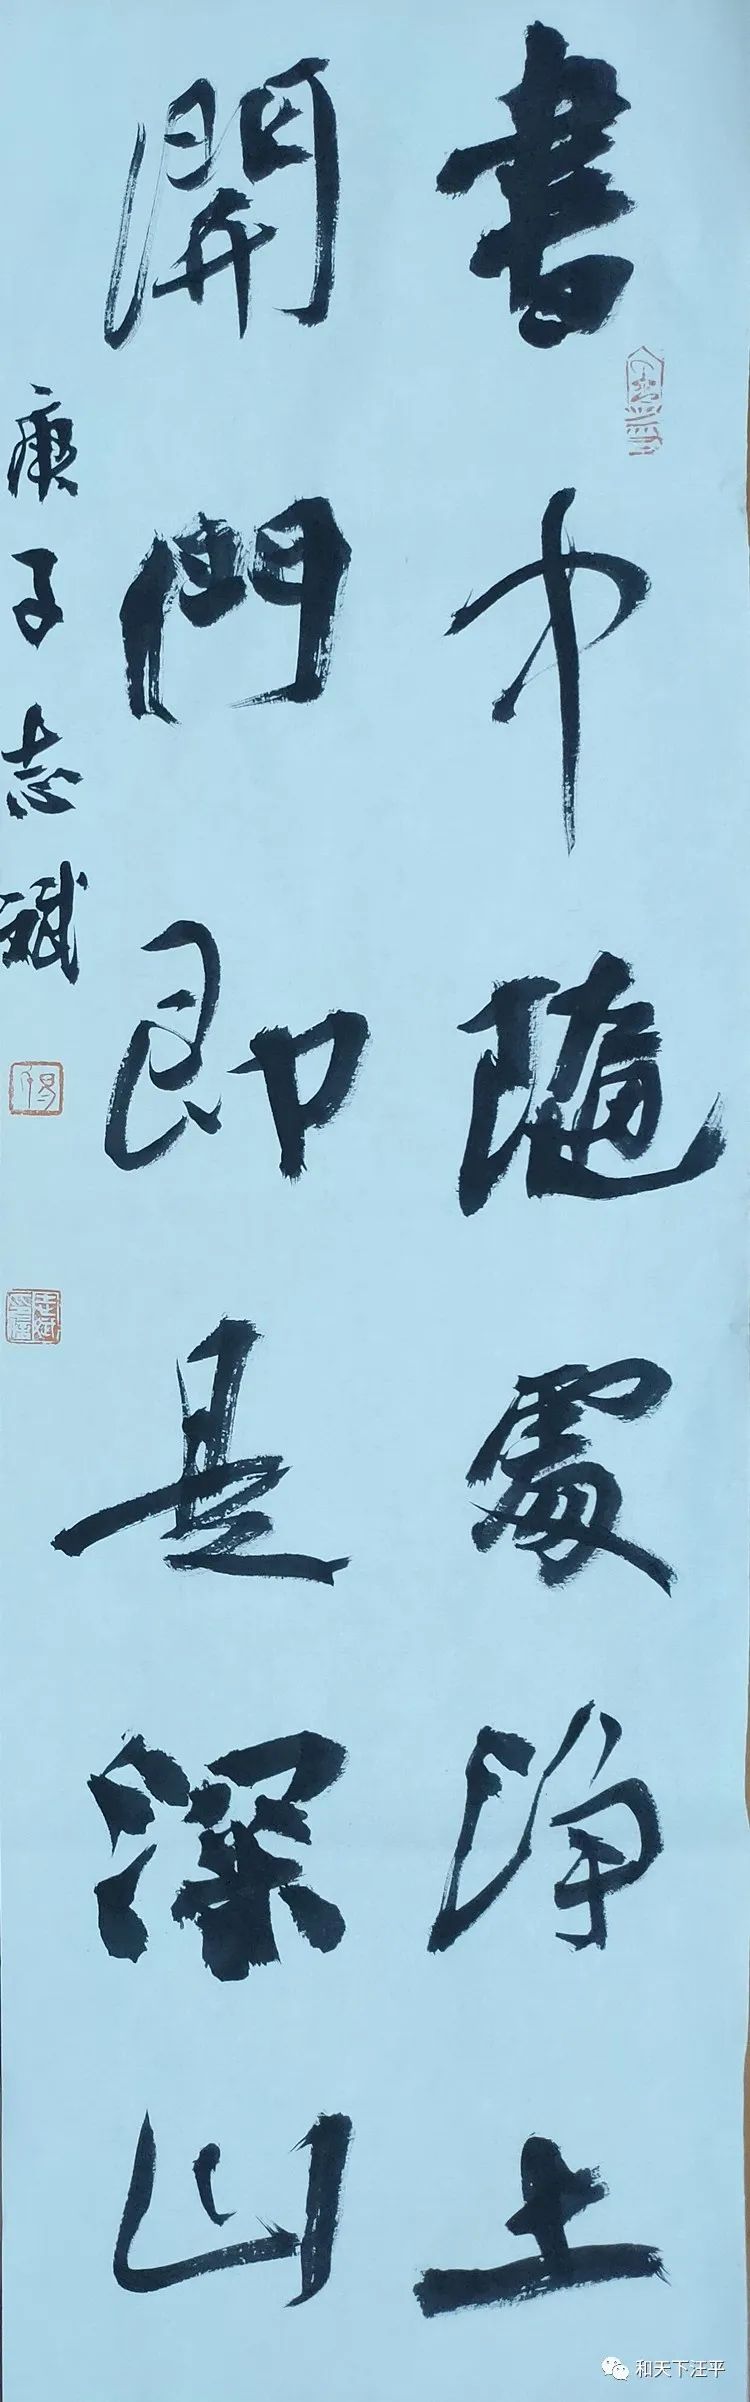 書中隨處淨土
開門即是深山
庚子志斌
和天下汪平